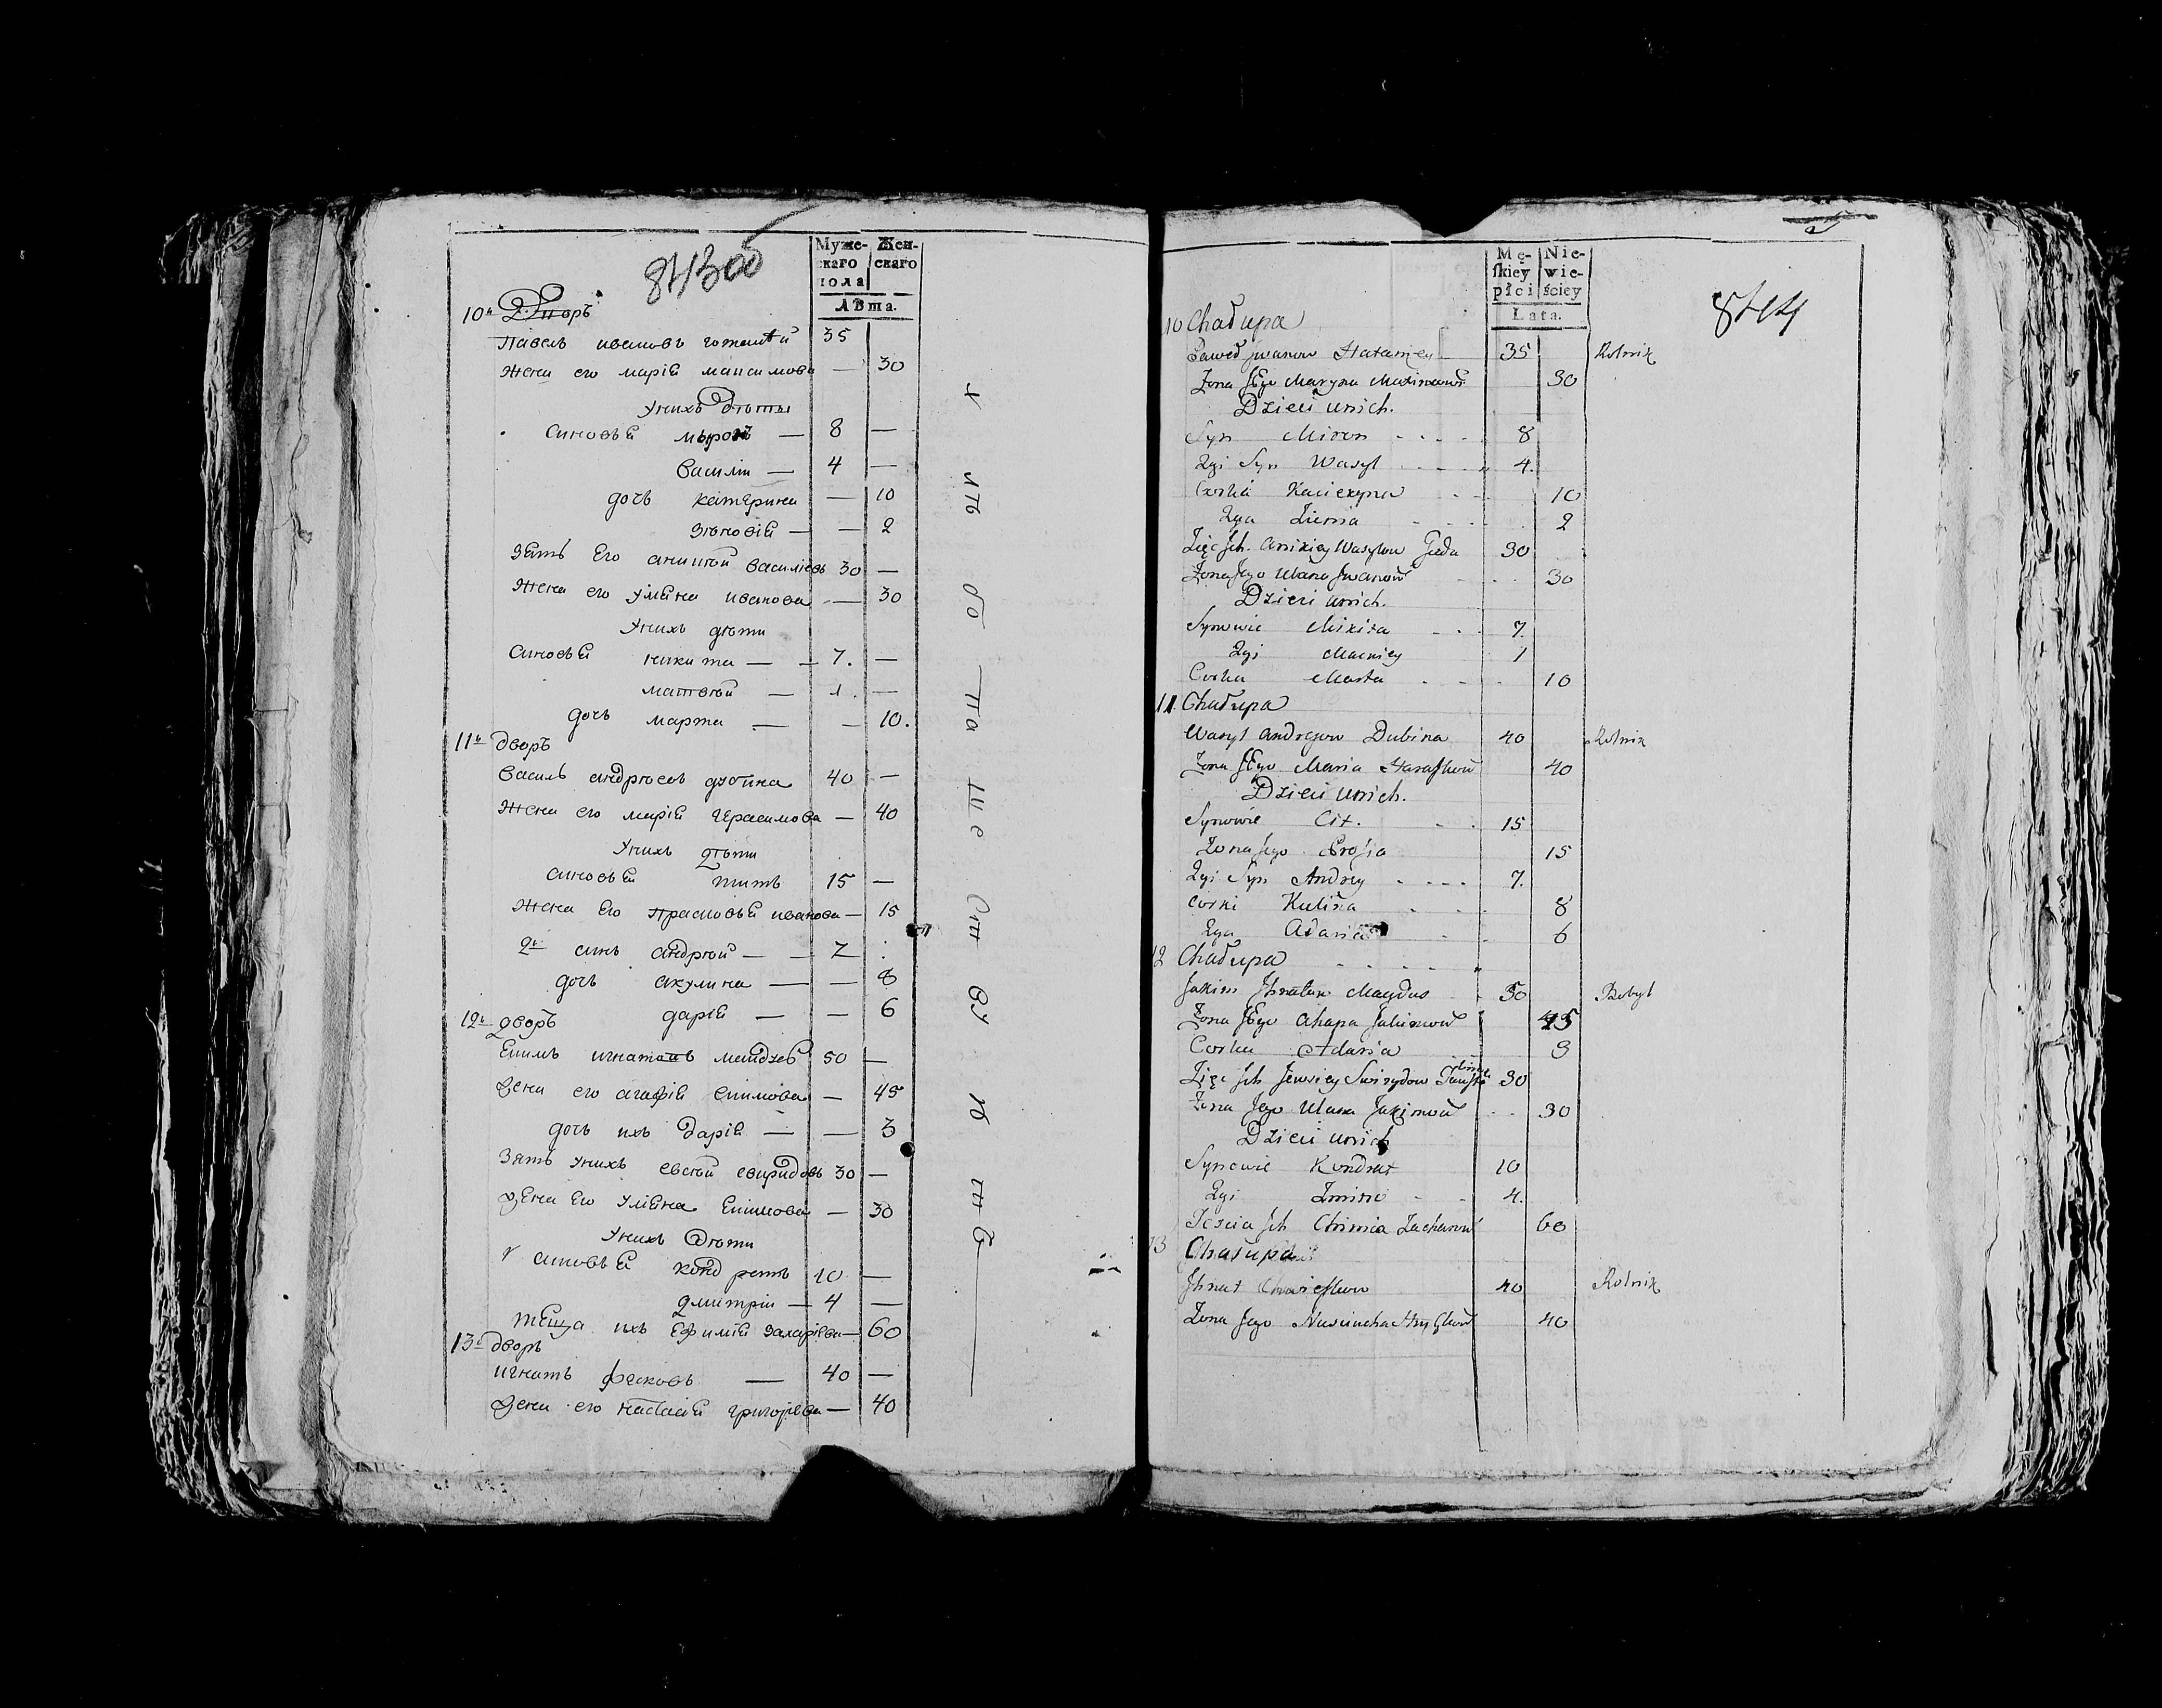 843 об
Муже-
скаго
пола
Жен-
скаго
Лѣта.
10й Дворъ
Павелъ ивановъ гожентъй 35
Жена его маріѣ максимова — 30
Унихъ дѣты
синовьѣ мыронъ — 8 —
василіи — 4 —
дочь катерина — 10
зѣновіѣ — — 2
Зять Его аникѣй василіевъ 30 —
Жена его улиѣна иванова — 30
Унихъ дѣти
синовьѣ никита — 7. —
матвѣй — 1. —
дочь марта — — 10.
11й дворъ
Василь андрѣевъ дубина 40 —
Жена его маріѣ герасимова — 40
Унихъ дѣти
синовьѣ титъ 15 —
Жена Его прасковьѣ иванова — 15
2й синъ андрѣй — 7
дочь акулина — — 8
дарія — — 6
12й дворъ
Екимъ игнатовъ майдзеб 50 —
Жена его агафія Екимова — 45
дочь ихъ дарія — — 3
Зять Унихъ евсѣй свиридовъ 30 —
Жена Его Улиѣна Екимова — 30
Унихъ дѣти
синовьѣ кондратъ 10 —
дмитріи — 4 —
тЕща ихъ Ефиміѣ захаріева — 60
13й дворъ
игнатъ фасковъ — 40 —
Жена его настасіѣ григоріева — 40
К лѣ бо па ше ст ву ю т ъ
844
Mę-
ſkiey
płci
Nie-
wie-
ściey
Lata.
10 Chałupa
Paweł Jwanow 35 Rolnik
Zona Jego Maryna Maximowa 30
Dzieci unich.
Syn Miron 8
2gi Syn Wasyl 4.
Corka Kacieryna 10
2ga Zienia 2
Zięc Ich. Anikiey Wasylow Guda 30
Zona Jego Ulana Jwanow 30
Dzieci unich.
Synowie Mikita 7.
2gi Macwiey 1
Corka Marta 10
11 Chałupa
Wasyl Andrejew Dubina 40 Rolnik
Zona Jego Maria Harasimow 40
Dzieci unich.
Synowie Cit. 15
Zona Jego Prosia 15
2gi Syn Andrey 7.
Corki Kulina 8
2ga Adaria 6
12 Chałupa
Jakim Jhnatow Maydus 50 Bobyl
Zona Jego Ahapa Jakimow 45
Corka Adaria 3
Zięc Ich Jewsiey Swirydow 30
Zona Jego Ulana Jakimow 30
Dzieci unich
Synowie Kondrat 10
2gi Zmitri 4.
Teścia Ich Chimia Zacharow 60
13 Chałupa
Jhnat 40 Rolnik
Zona Jego 40